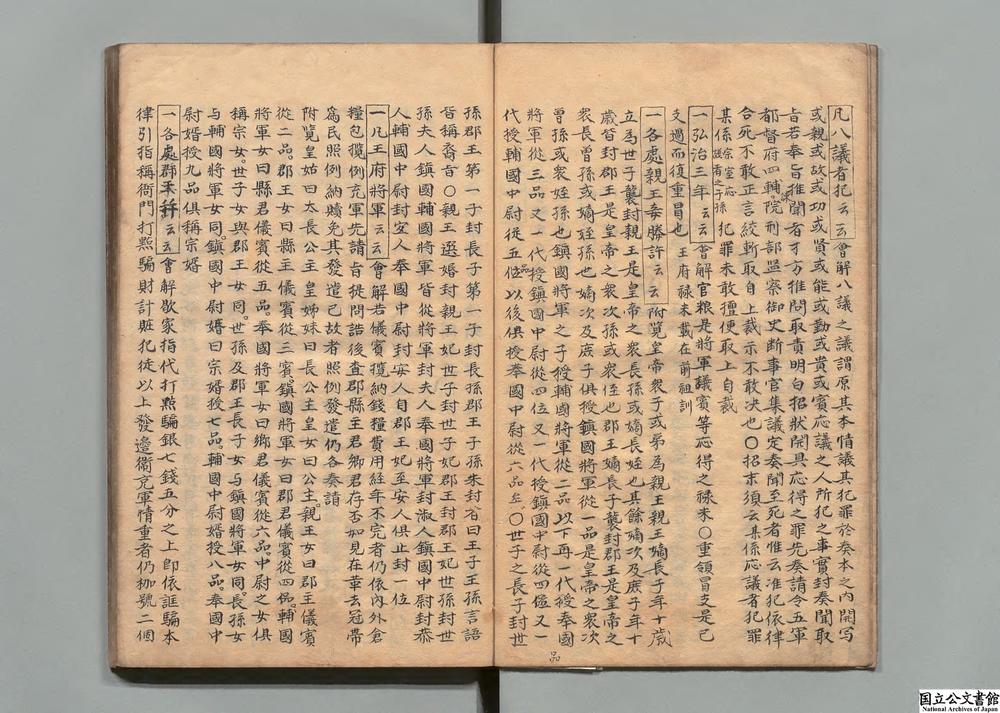 凡八議者犯云云會解八議之議謂原其本情議其犯罪於奏本之內開写
或親或故或功或賢或能或勤或貴或賓応議之人所犯之事實封奏聞取
旨若奉旨推聞者才方推問取責明白招狀開具応得之罪先奏請令五軍
都督府四輔諌院刑部監察御史断事官集議定奏聞至死者惟云准犯依律
合死不敢正言絞斬取自上裁示不敢決也〇招末須云某係応議者犯罪
某係宗室応議者之子孫犯罪未敢擅便取上自裁
一弘治三年云云會解官粮是將軍議賓等応得之祿米〇重領冒支是已
支過而復重冒也 王府祿米載在前祖訓
一各處親王妾媵許云云附覧皇帝衆子或弟為親王親王嫡長子年十歲
立為世子襲封親王是皇帝之衆長孫或嫡長姪也其餘嫡次及庶子年十
歲皆封郡王是皇帝之衆次孫或衆侄也郡王嫡長子襲封郡王是皇帝之
衆長曽孫或嫡姪孫也嫡次及庶子俱授鎮國將軍從一品是皇帝之衆次
曽孫或衆姪孫也鎮國將軍之子授輔國將軍從二品以下再一代授奉國
將軍從三品又一代授鎮國中尉從四位又一代授鎮國中尉從四僵又一
代授輔國中尉從五位以後俱授奉國中尉從六品至〇世子之長子封世
品
孫郡王第一子封長子第一子封長孫郡王子孫朱封谷曰王子王孫言語
皆稱裔音〇親王選婚封親王妃世子封世子妃郡王封郡王妃世孫封世
孫夫人鎮國輔國將軍皆從將軍封夫人奉國將軍封淑人鎮國中尉封恭
人輔國中尉封宜人奉國中尉封安人自郡王妃至安人俱止封一位
一凡王府將軍云云會解若儀賓攬納錢糧費用経年不完者仍依內外倉
糧包攬例充軍先請旨提問請後査郡縣主君卿君存否如見在華去冠帶
為民照例納贖免其發遣已故者照例發遣仍各奏請
附覧皇姑曰大長公主皇姊妹曰長公主皇女曰公主親王女曰郡主儀賓
從二品郡王女曰縣主儀賓從三賓鎮國將軍女曰郡君儀賓從四品輔國
將軍女曰縣君儀賓從五品奉國將軍女曰鄉君儀賓從六品中尉之女俱
稱宗女世子女與郡王女同世孫及郡王長子女与鎮國將軍女同長孫女
与輔國將軍女同鎮國中尉婿曰宗婿授七品輔國中尉婿授八品奉國中
尉婿授九品俱稱宗婿
一各處郡王云云會解歇家指代打點騙銀七錢五分之上即依誆騙本
律引指稱衙門打點騙財計賍犯徒以上發邊衛充軍情重者仍枷號二個
国立公文書館
National Archives of Japan